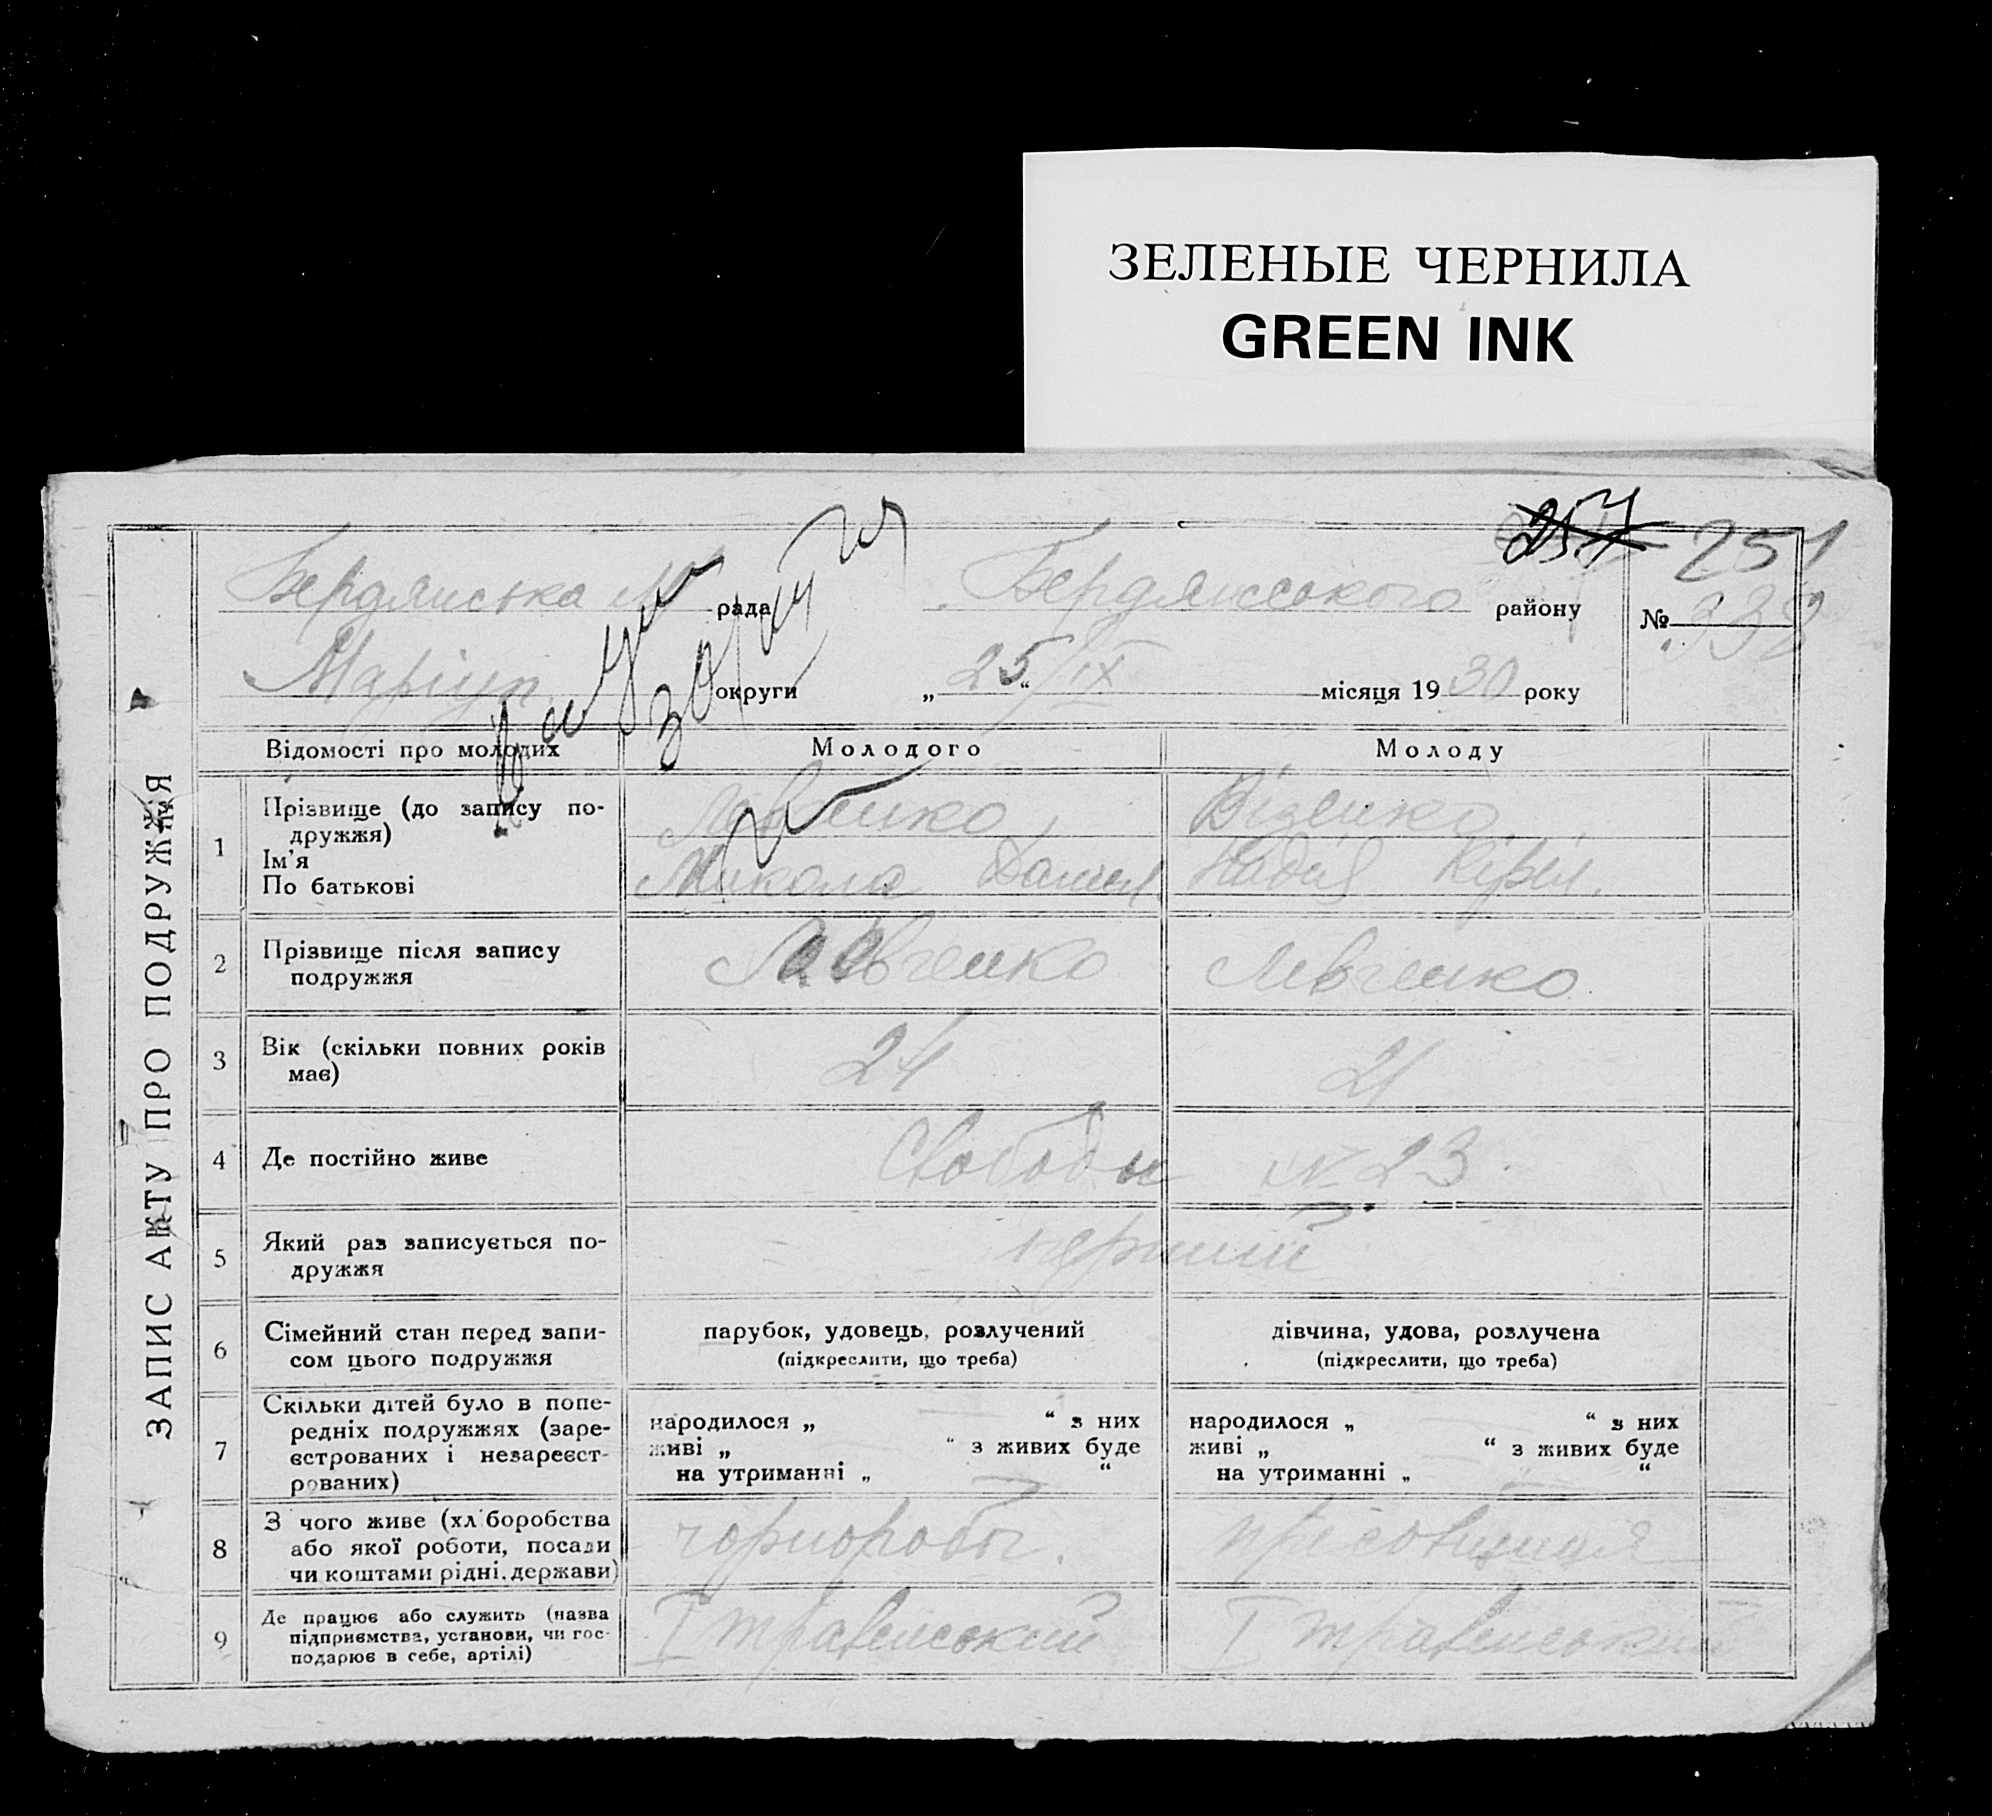 ЗЕЛЕНЫЕ ЧЕРНИЛА
GREEN INK
257 251
Бердянська М рада Бердянського району № 338
Маріуп. округи „25“ IX місяця 1930 року
ЗАПИС АКТУ ПРО ПОДРУЖЖЯ
Відомості про молодих Молодого Молоду
1 Прізвище (до запису подружжя) Левченко, Візенко
Ім'я
По батькові Микола Данил. Надія Кіріл.
2 Прізвище після запису
подружжя Левченко Левченко
3 Вік (скільки повних років
має) 24 21
4 Де постійно живе Свободи № 23
5 Який раз записується по-
дружжя перший
6 Сімейний стан перед запи- парубок, удовець, розлучений дівчина, удова, розлучена
сом цього подружжя (підкреслити, що треба) (підкреслити, що треба)
7 Скільки дітей було в попе-
редніх подружжях (заре- народилося „ “ з них народилося „ “ з них
єстрованих і незареєст- живі „ “ з живих буде живі „ “ з живих буде
рованих) на утриманні „ “ на утриманні „ “
8 З чого живе (хліборобства
або якої роботи, посади чорнороби.
чи коштами рідні, держави)
9 Де працює або служить (назва
підприємства, установи, чи гос- І травенський І травенський
подарює в себе, артілі)